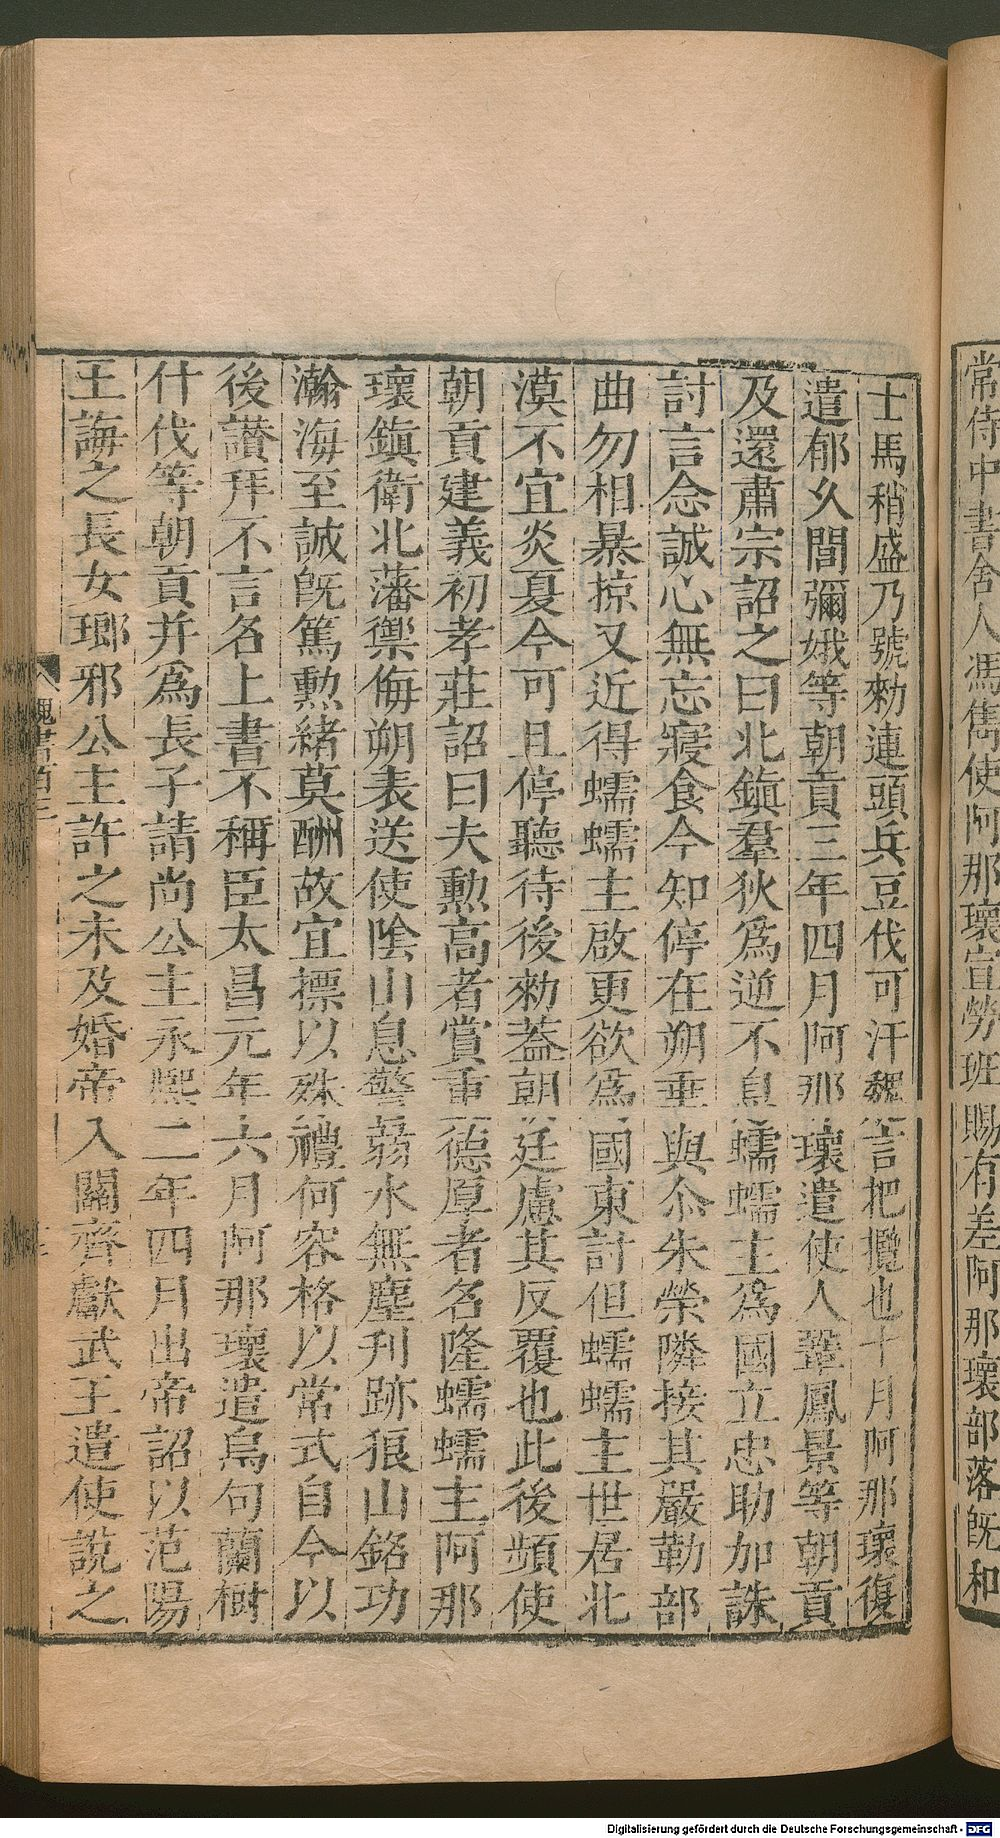 常侍中書舍人馮雋使阿那瓌宣勞班賜有差阿那瓌部落既和
士馬稍盛乃號勑連頭兵豆伐可汗魏言把攬也十月阿那瓌復
遣郁久閭彌娥等朝貢三年四月阿那瓌遣使人鞏鳳景等朝貢
及還肅宗詔之曰北鎮羣狄爲逆不息蠕蠕主爲國立忠助加誅
討言念誠心無忘寢食今知停在朔垂與尒朱榮隣接其嚴勒部
曲勿相暴掠又近得蠕蠕主啟更欲爲國東討但蠕蠕主世居北
漠不宜炎夏今可且停聽待後勑蓋朝廷慮其反覆也此後頻使
朝貢建義初孝莊詔曰夫勲高者賞重德厚者名隆蠕蠕主阿那
瓌鎮衛北藩禦侮朔表送使陰山息警弱水無塵刋跡狼山銘功
瀚海至誠既篤勲緒莫酬故宜摽以殊禮何容格以常式自今以
後讃拜不言名上書不稱臣太昌元年六月阿那瓌遣烏句蘭樹
什伐等朝貢并爲長子請尚公主永熙二年四月出帝詔以范陽
王誨之長女瑯邪公主許之未及婚帝入關齊獻武王遣使說之
魏書百三
Digitalisierung gefördert durch die Deutsche Forschungsgemeinschaft - DFG